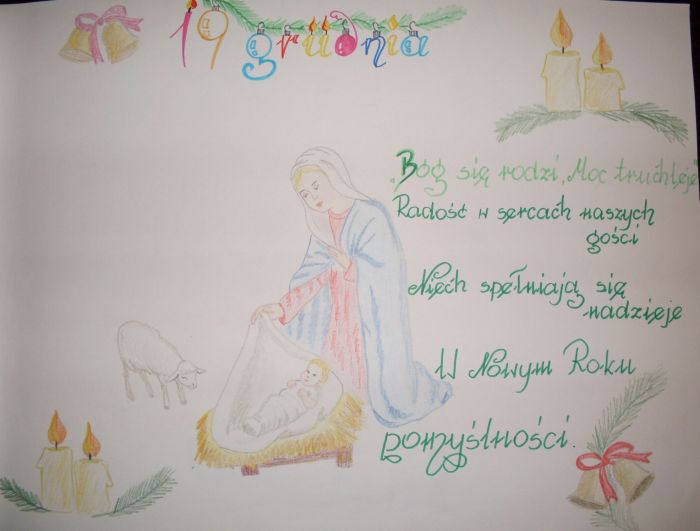 19 grudnia
„Bóg się rodzi, Moc truchleje”
Radość w sercach naszych
gości
Niech spełniają się
nadzieje
W Nowym Roku
pomyślności.